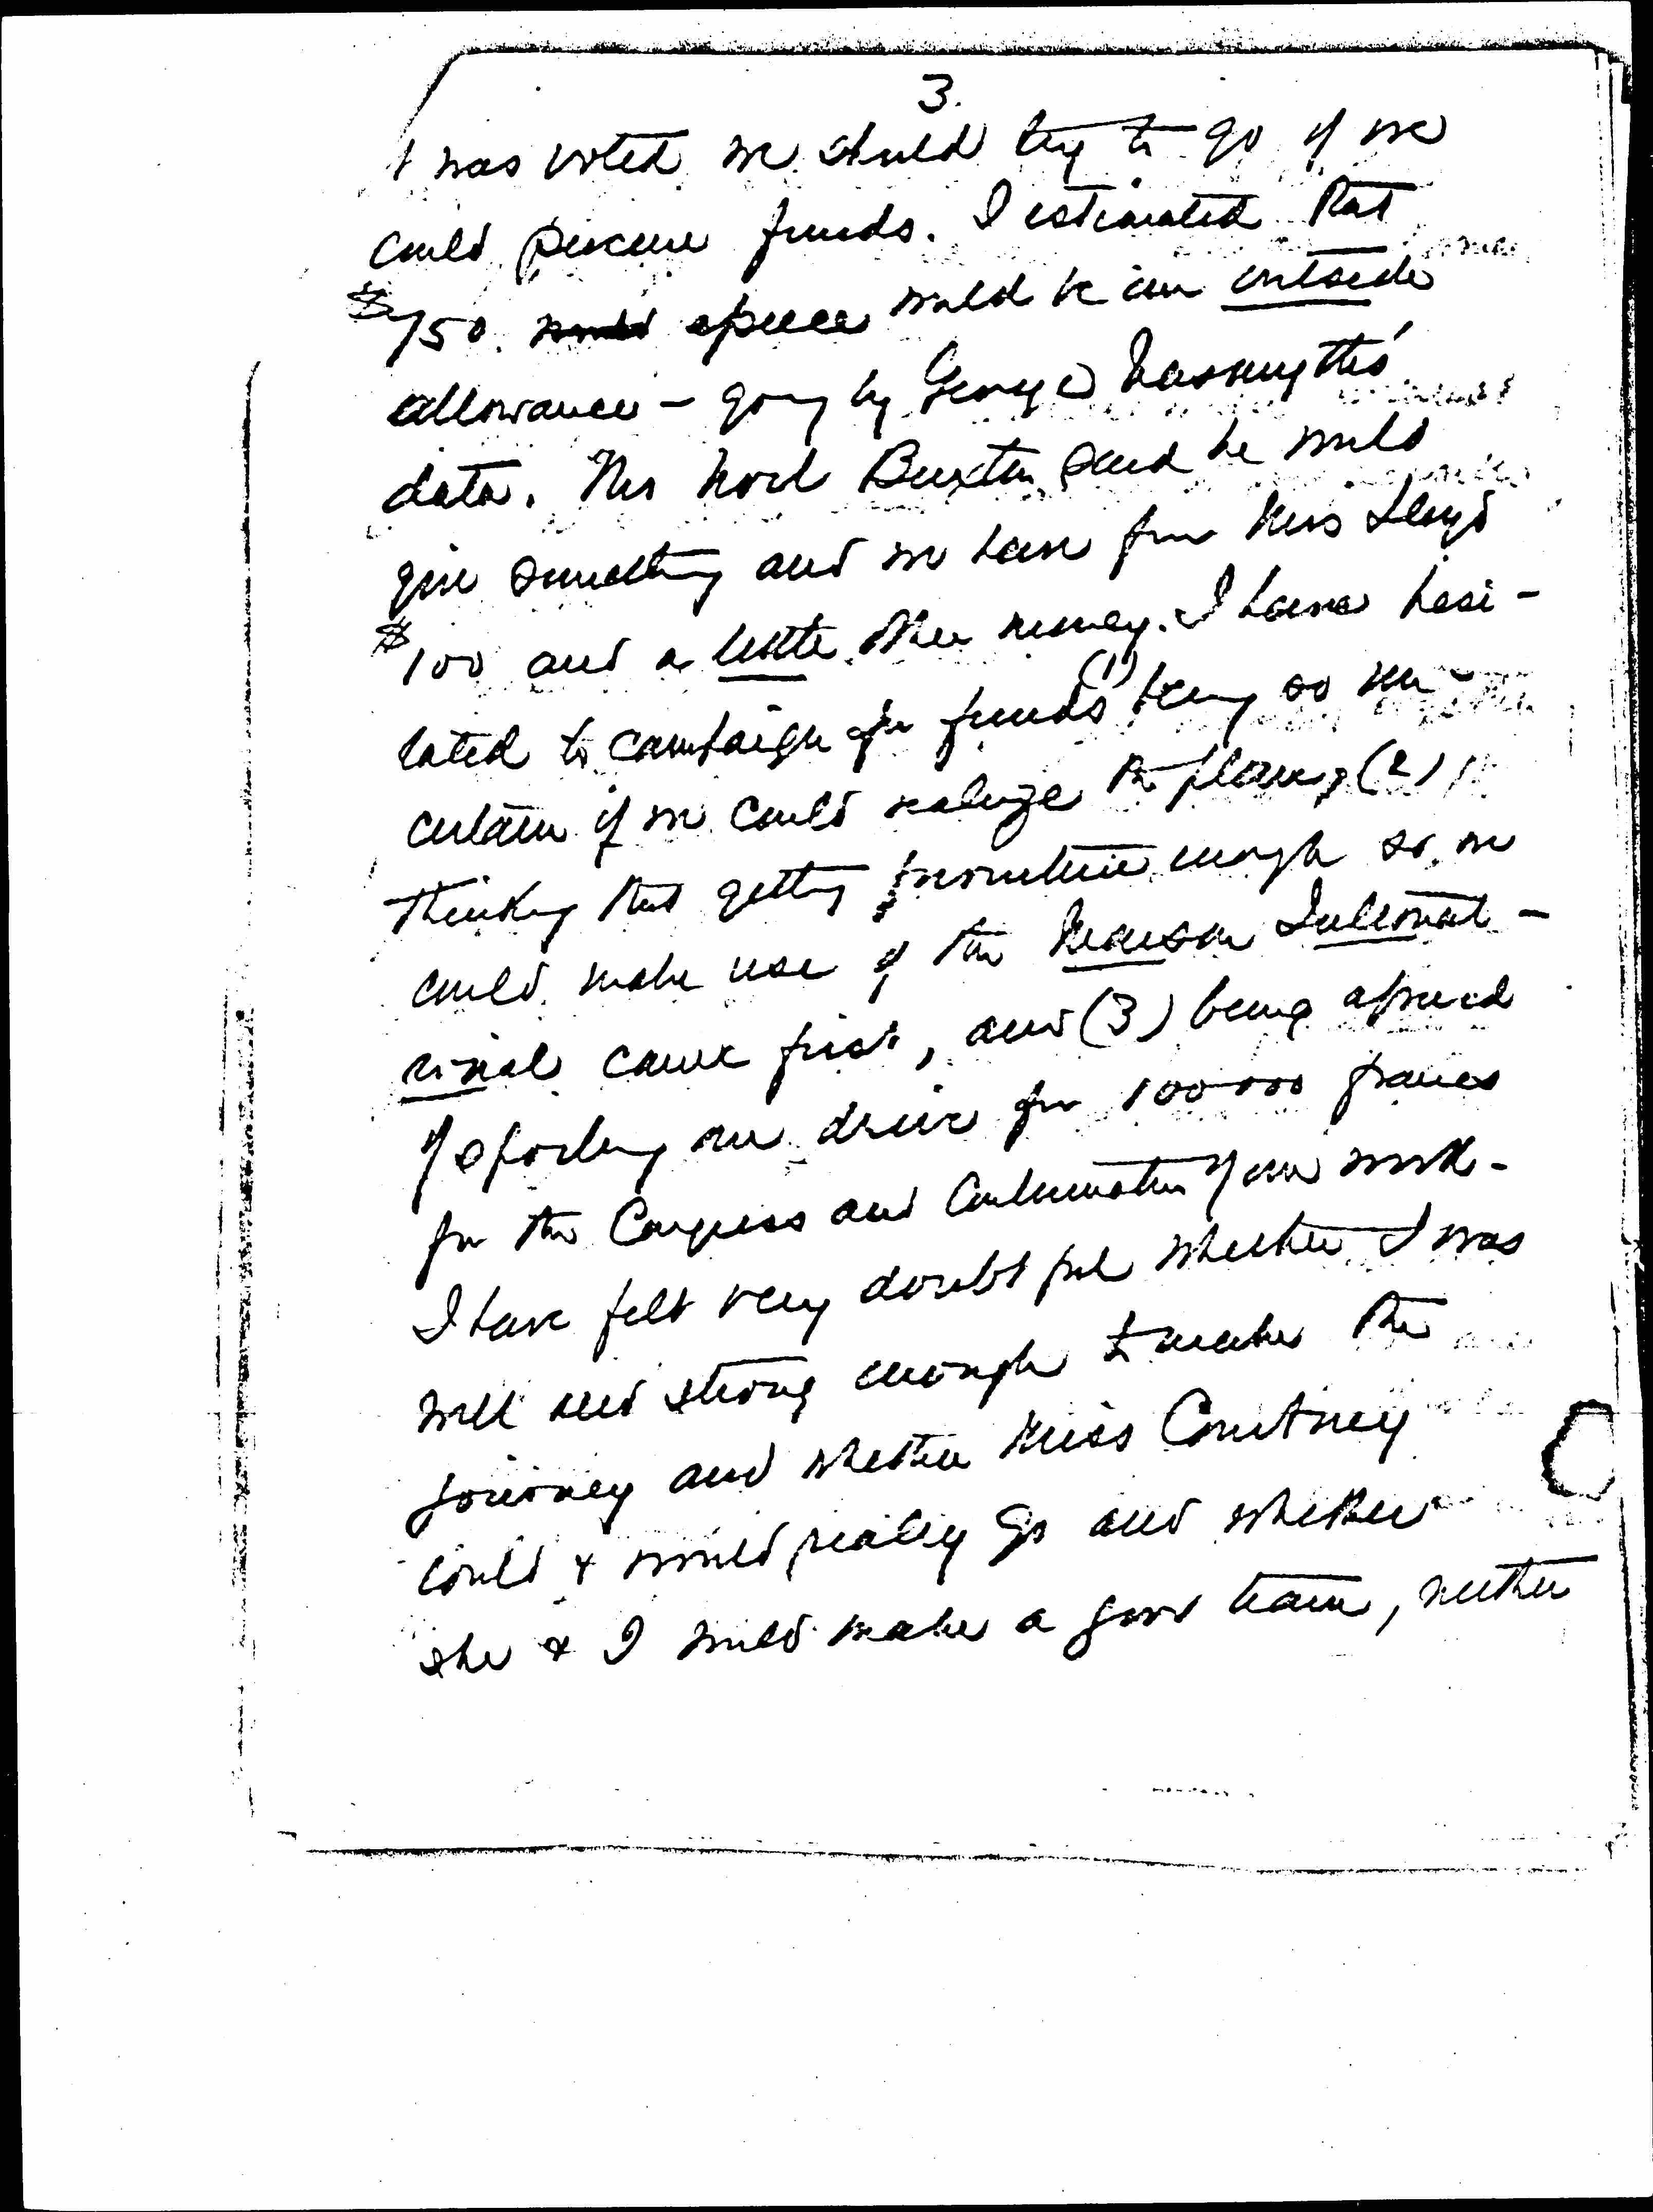 3.
t was voted we should try to go if we
could procure funds. I estimated that
$750 would apiece would be our outside
allowance - going by George Nasmyth's
data. Mr Noel Buxton said he would
give something and we have from Miss Lloyd
$100 and a little other money. I have hesi-
tated to campaign for funds (1) being so un-
certain if we could realize the plan, (2)
thinking that getting furniture enough so we
could make use of the Maison Internat-
ional came first, and (3) being afraid
of spoiling our drive for 100 000 francs
for the Congress and Continuation of our work.
I have felt very doubtful whether I was
well and strong enough to make the
journey and whether Miss Courtney
could & would really go and whether
she & I would make a good team, neither